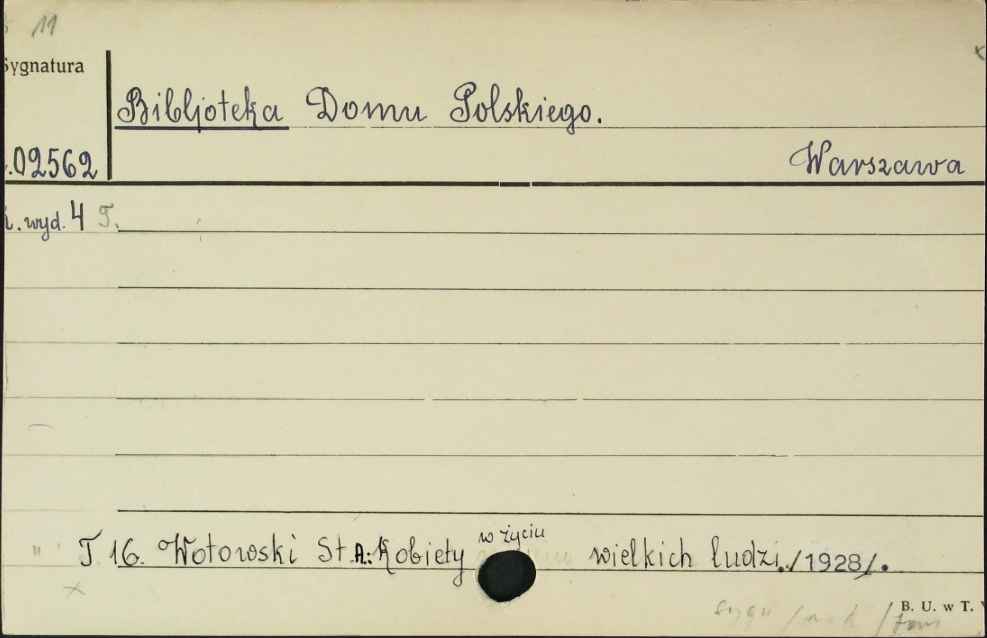 11
Sygnatura
Bibljoteka Domu Polskiego.
02562
Warszawa
wyd. 4 T.
w życiu
" T. 16. Wotowski St.A.: Kobiety wielkich ludzi./1928/.
B. U. w T.